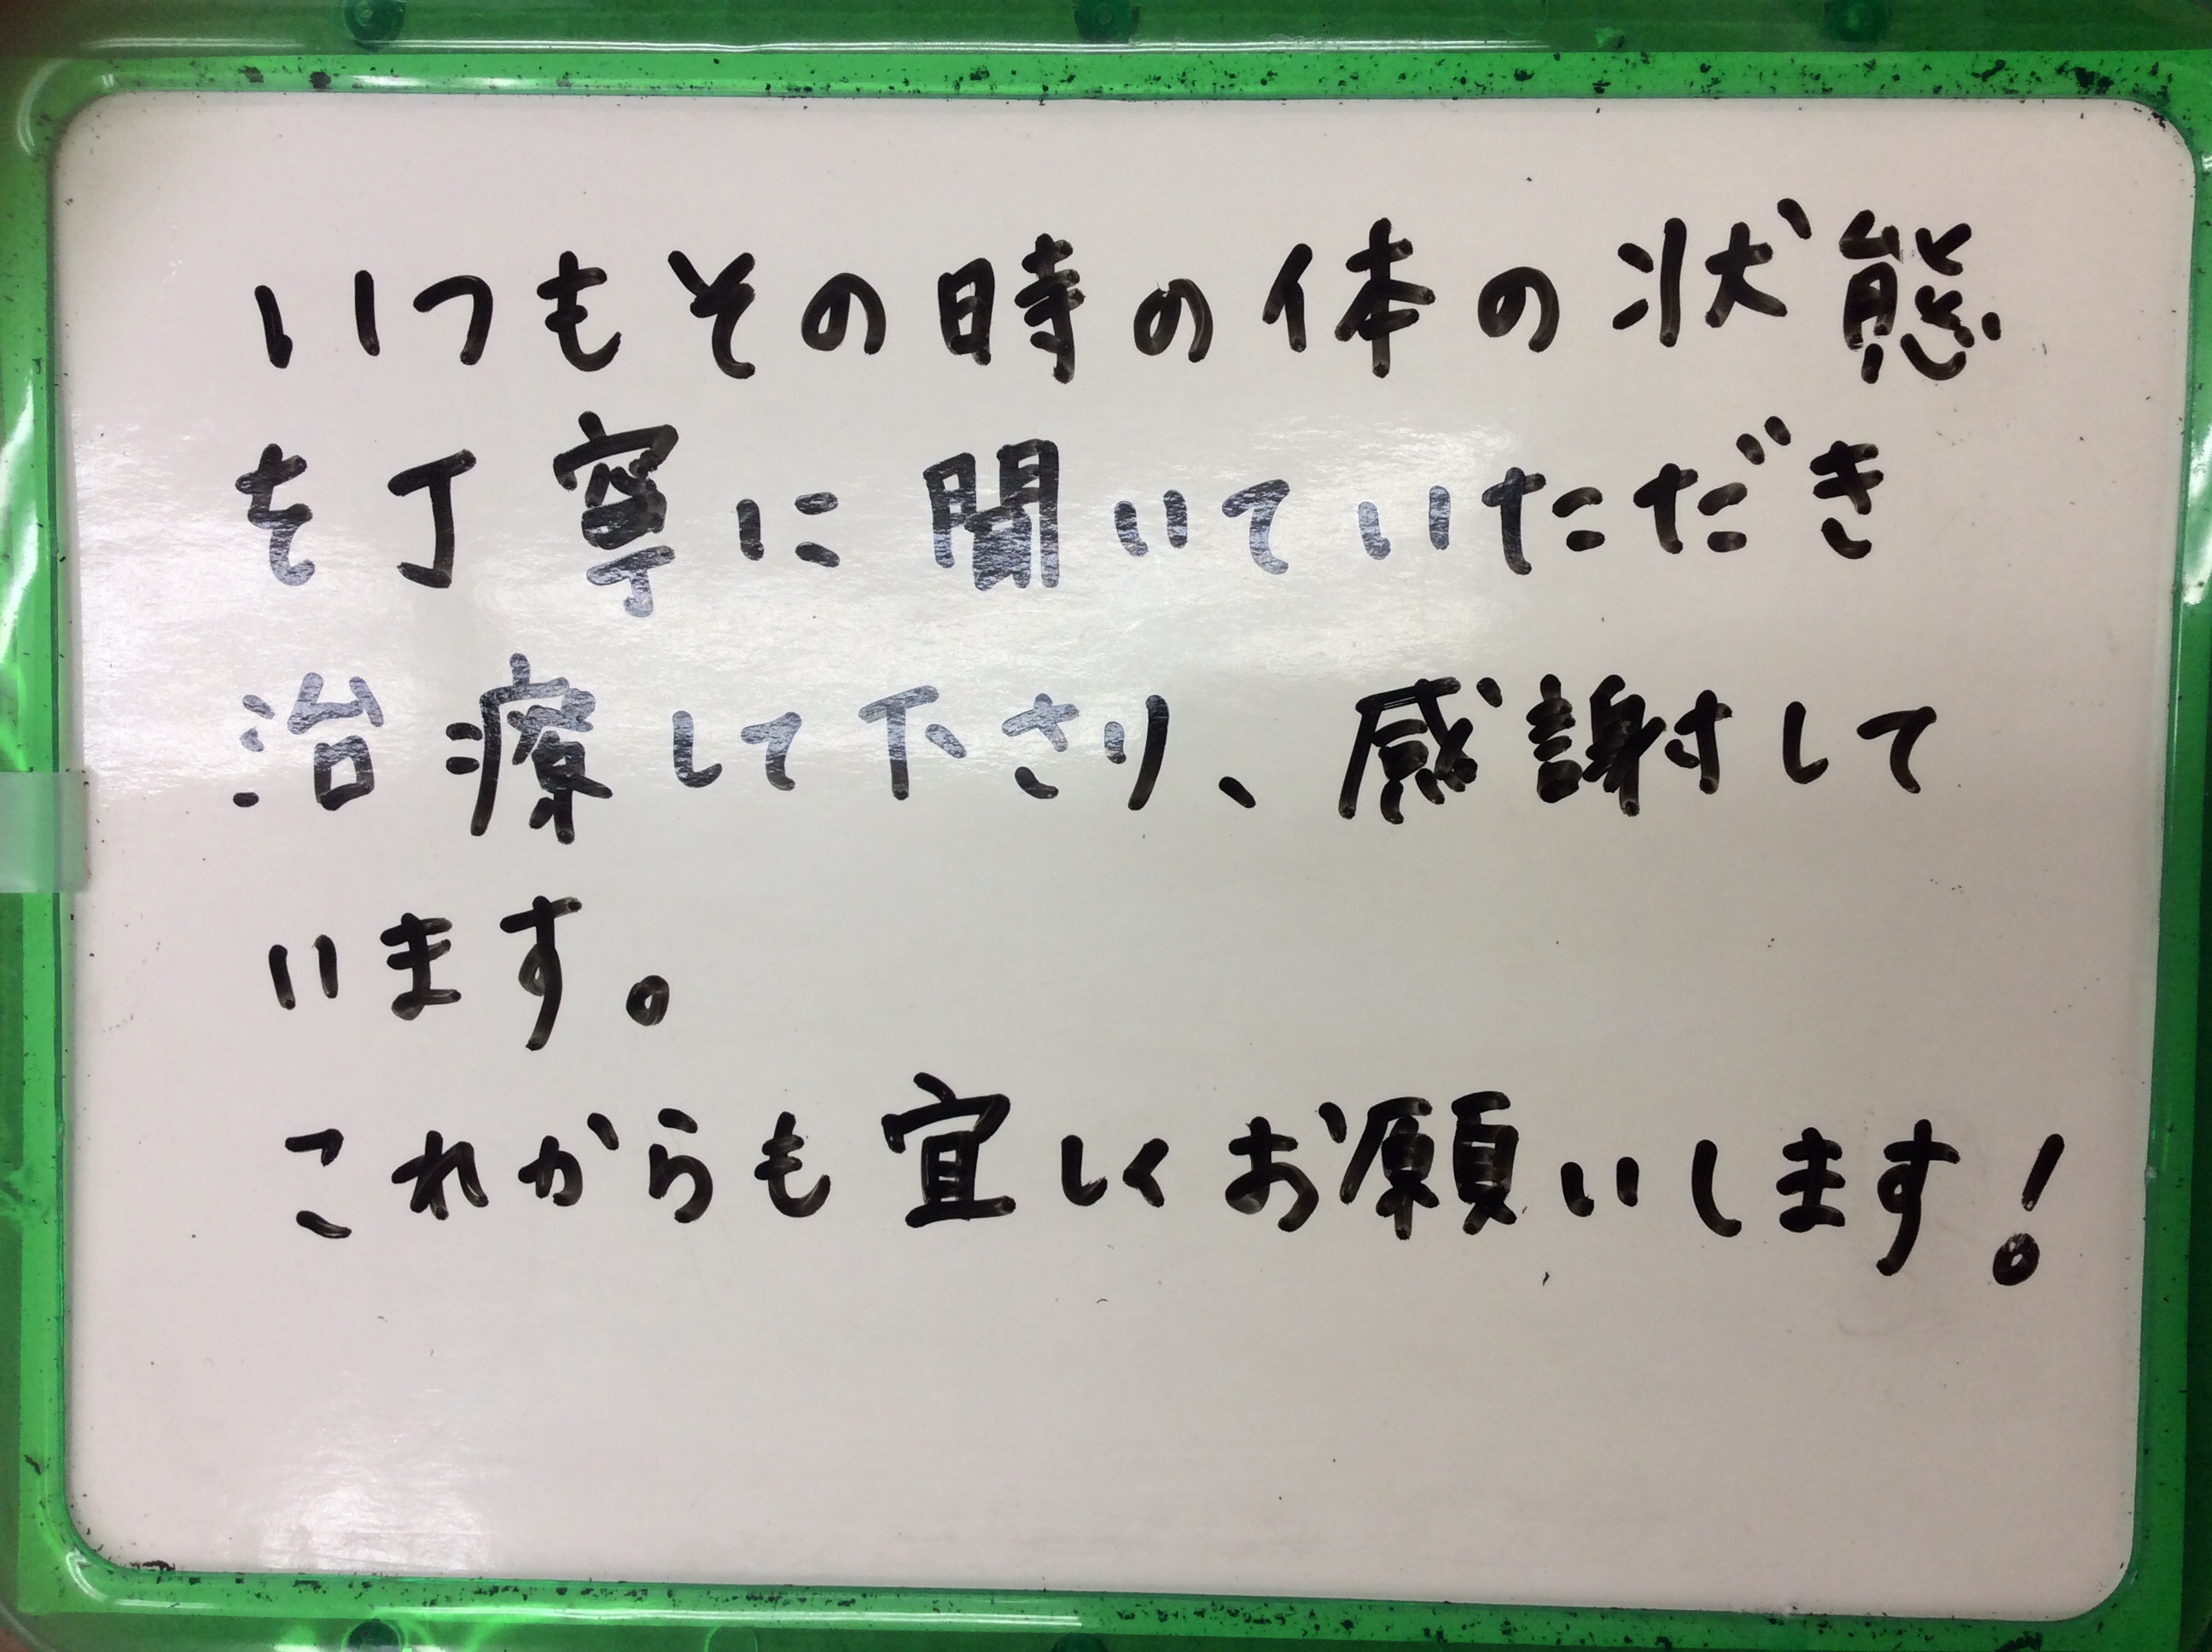 いつもその時の体の状態
を丁寧に聞いていただき
治療して下さり、感謝して
います。
これからも宜しくお願いします!